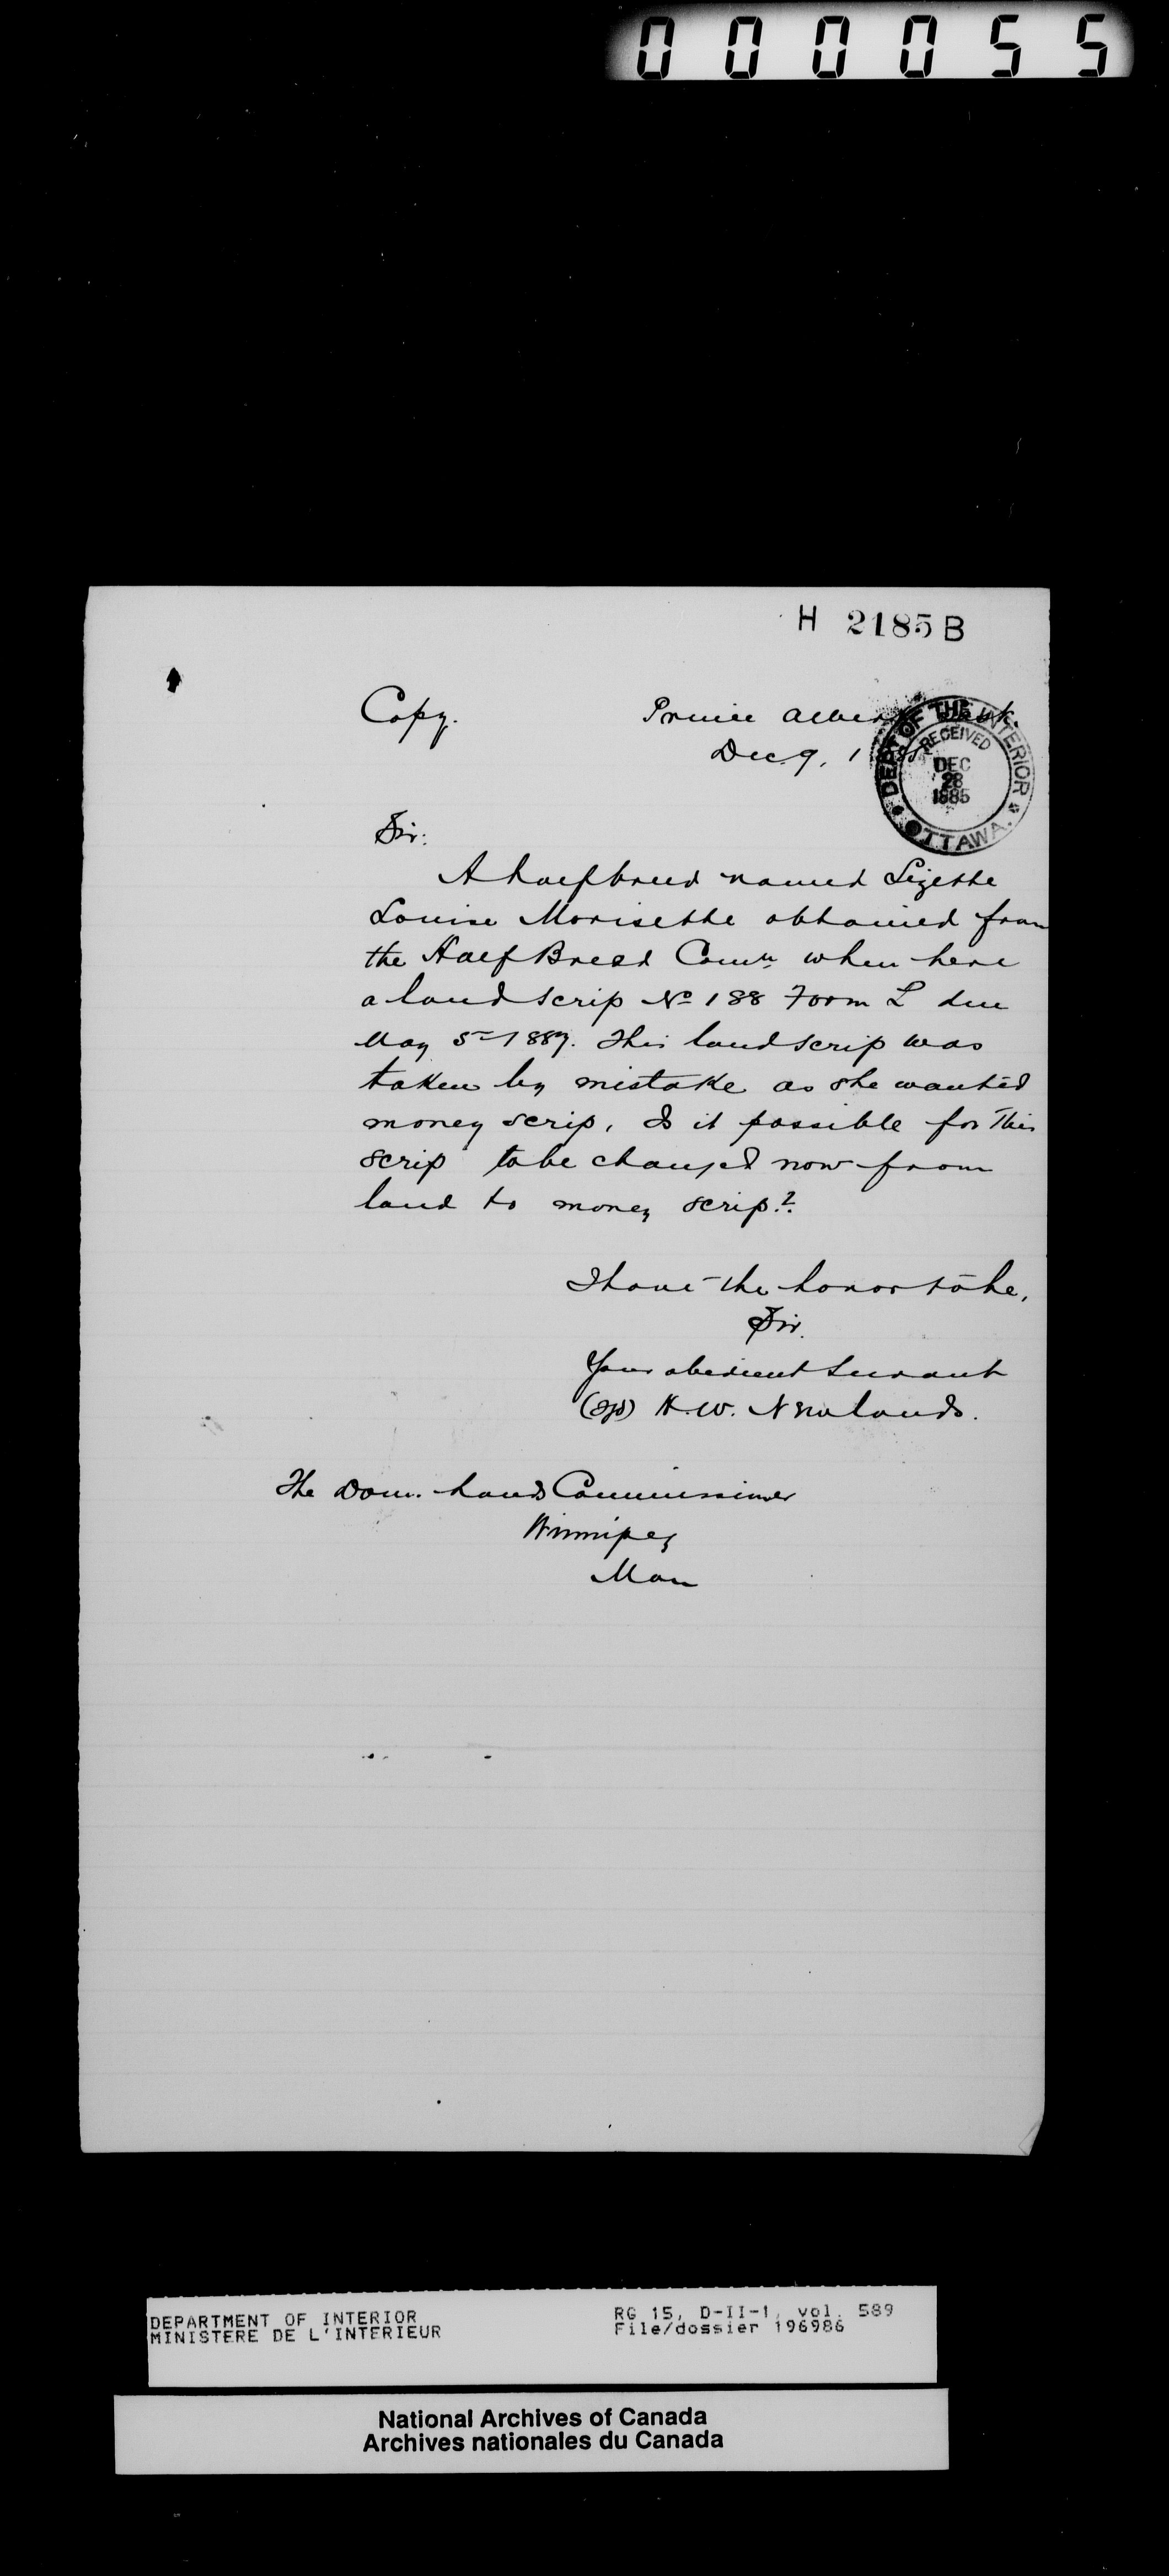 000055
H 2185 B
Copy.
Prince Albert Sask.
Dec. 9, 1885
DEPT OF THE INTERIOR
RECEIVED
DEC
28
1885
OTTAWA.
Sir:
A halfbreed named Lizette
Louise Morisette obtained from
the Half Breed Comn. when here
a land scrip No 188 Form L due
May 5 1887. This land scrip was
taken by mistake as she wanted
money scrip. Is it possible for this
scrip to be changed now from
land to money scrip?
I have the honor to be,
Sir.
Your obedient Servant
(sgd) H.W. Newlands.
The Dom. Lands Commissioner
Winnipeg
Man
DEPARTMENT OF INTERIOR
MINISTERE DE L'INTERIEUR
RG 15, D-II-1, vol. 589
File/dossier 196986
National Archives of Canada
Archives nationales du Canada